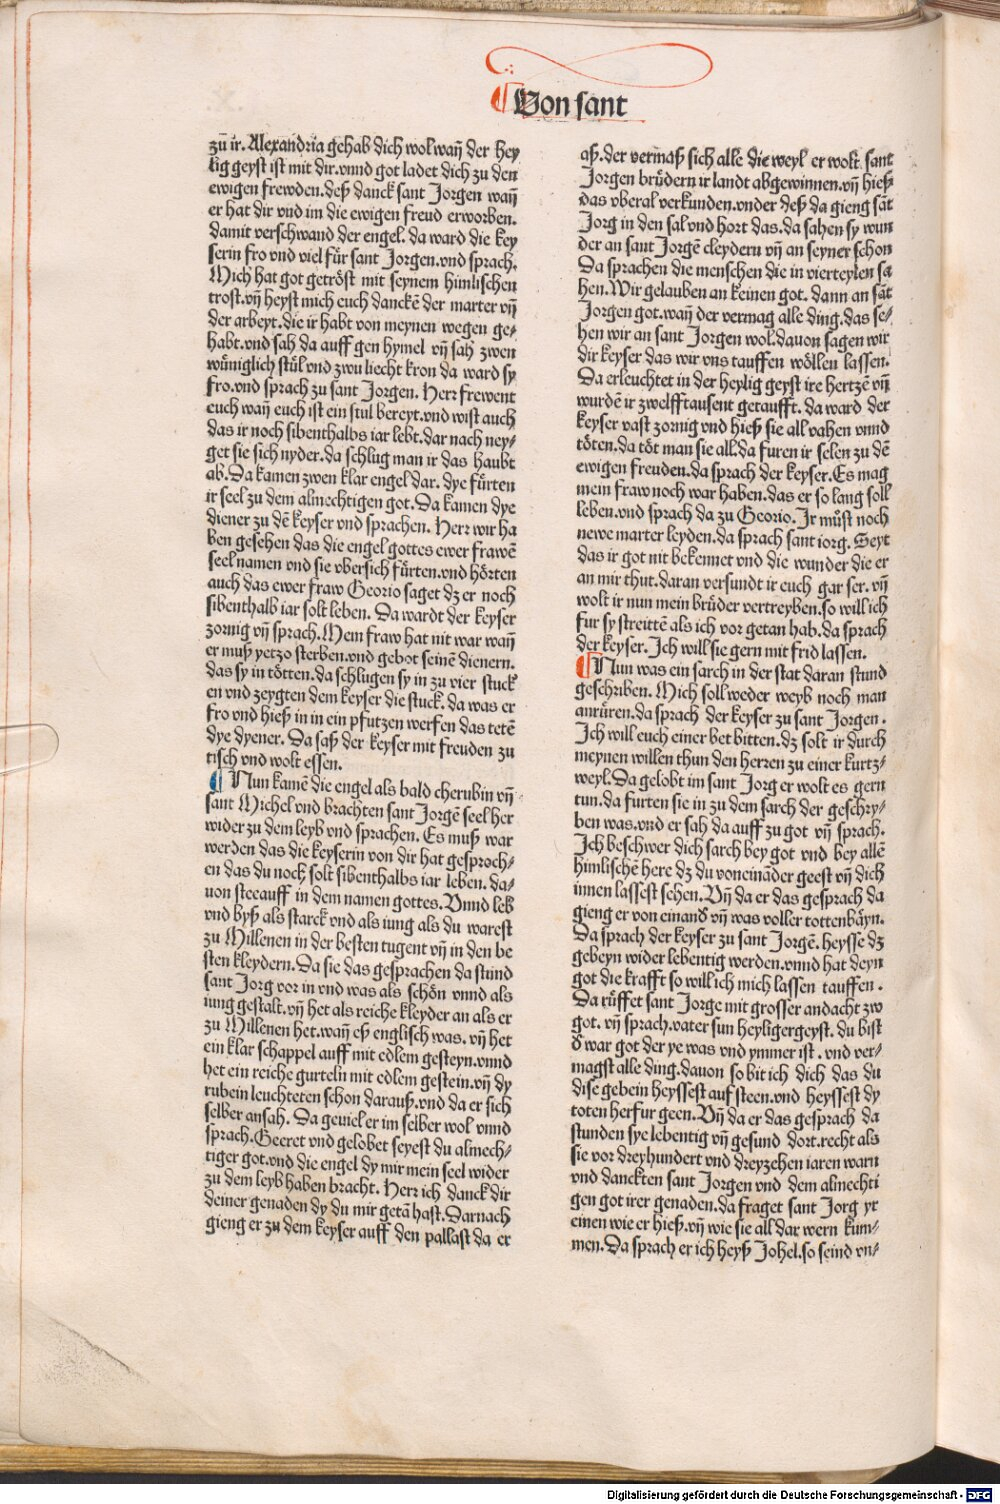 ¶Von sant
zu ir. Alexandria gehab dich wol wañ der hey
lig geyst ist mit dir.vnnd got ladet dich zu den
ewigen frewden.deß danck sant Jorgen wañ
er hat dir vnd im die ewigen freud erworben.
damit verschwand der engel. da ward die key
serin fro vnd viel für sant Jorgen.vnd sprach.
Mich hat got getröst mit seynem himlischen
trost.vñ heyst mich euch danckẽ der marter vñ
der arbeyt.die ir habt von meynen wegen ge⸗
habt.vnd sah da auff gen hymel vñ sah zwen
wüniglich stül vnd zwu liecht kron da ward sy
fro.vnd sprach zu sant Jorgen. Herr frewent
euch wañ euch ist ein stul bereyt.vnd wist auch
das ir noch sibenthalbs iar lebt.dar nach ney⸗
get sie sich nyder.da schlug man ir das haubt
ab.Da kamen zwen klar engel dar. dye fürten
ir seel zu dem almechtigen got.Da kamen dye
diener zu dẽ keyser vnd sprachen. Herr wir ha
ben gesehen das die engel gottes ewer frawẽ
seel namen vnd sie vbersich fürten.vnd hörten
auch das ewer fraw Georio saget dz er noch
sibenthalb iar solt leben. Da wardt der keyser
zornig vñ sprach.Mein fraw hat nit war wañ
er muß yetzo sterben.vnd gebot seinẽ dienern.
das sy in tötten.da schlugen sy in zu vier stuck
en vnd zeygten dem keyser die stuck. da was er
fro vnd hieß in in ein pfutzen werfen das tetẽ
dye dyener. Da saß der keyser mit freuden zu
tisch vnd wolt essen.
¶Nun kamẽ die engel als bald cherubin vñ
sant Michel vnd brachten sant Jorgẽ seel her
wider zu dem leyb vnd sprachen. Es muß war
werden das die keyserin von dir hat gesproch⸗
en das du noch solt sibenthalbs iar leben. da⸗
uon stee auff in dem namen gottes. Vnnd leb
vnd byß als starck vnd als iung als du warest
zu Millenen in der besten tugent vñ in den be
sten kleydern.Da sie das gesprachen da stund
sant Jorg vor in vnd was als schön vnnd als
iung gestalt.vñ het als reiche kleyder an als er
zu Millenen het.wañ eß englisch was. vñ het
ein klar schappel auff mit edlem gesteyn.vnnd
het ein reiche gurteln mit edlem gestein.vñ dy
rubein leuchteten schon darauß.vnd da er sich
selber ansah. Da geuiel er im selber wol vnnd
sprach.Geeret vnd gelobet seyest du almech⸗
tiger got.vnd die engel dy mir mein seel wider
zu dem leyb haben bracht. Herr ich danck dir
deiner genaden dy du mir getã hast.Darnach
gieng er zu dem keyser auff den pallast da er
aß.der vermaß sich alle die weyl er wolt sant
Jorgen brüdern ir landt abgewinnen.vñ hieß
das vberal verkunden.vnder deß da gieng sãt
Jorg in den sal vnd hort das.da sahen sy wun
der an sant Jorgẽ cleydern vñ an seyner schon
Da sprachen die menschen die in vierteylen sa
hen.Wir gelauben an keinen got. dann an sãt
Jorgen got.wañ der vermag alle ding.das se⸗
hen wir an sant Jorgen wol.dauon sagen wir
dir keyser das wir vns tauffen wöllen lassen.
Da erleuchtet in der heylig geyst ire hertzẽ vñ
wurdẽ ir zwelfftausent getaufft. da ward der
keyser vast zornig vnd hieß sie all vahen vnnd
töten.da töt man sie all.da furen ir selen zu dẽ
ewigen freuden.da sprach der keyser.Es mag
mein fraw noch war haben.das er so lang soll
leben.vnd sprach da zu Georio. Ir müst noch
newe marter leyden.da sprach sant iorg. Seyt
das ir got nit bekennet vnd die wunder die er
an mir thut.daran versundt ir euch gar ser. vñ
wolt ir nun mein brüder vertreyben.so will ich
fur sy streittẽ als ich vor getan hab.da sprach
der keyser. Ich will sie gern mit frid lassen.
¶Nun was ein sarch in der stat daran stund
geschriben. Mich soll weder weyb noch man
anrüren.da sprach der keyser zu sant Jorgen.
Ich will euch einer bet bitten.dz solt ir durch
meynen willen thun den herren zu einer kurtz⸗
weyl.Da gelobt im sant Jorg er wolt es gern
tun.da furten sie in zu dem sarch der geschry⸗
ben was.vnd er sah da auff zu got vñ sprach.
Ich beschwer dich sarch bey got vnd bey allẽ
himlischẽ here dz du voneinãder geest vñ dich
innen lassest sehen. Vñ da er das gesprach da
gieng er von einand̾ vñ was voller tottenbäyn.
Da sprach der keyser zu sant Jorgẽ. heysse dz
gebeyn wider lebentig werden.vnnd hat deyn
got die krafft so will ich mich lassen tauffen.
Da rüffet sant Jorge mit grosser andacht zw
got. vñ sprach.vater sun heyligergeyst. du bist
d̾ war got der ye was vnd ymmer ist. vnd ver⸗
magst alle ding.dauon so bit ich dich das du
dise gebein heyssest auf steen.vnd heyssest dy
toten herfur geen. Vñ da er das gesprach da
stunden sye lebentig vñ gesund dort.recht als
sie vor dreyhundert vnd dreyzehen iaren warn
vnd danckten sant Jorgen vnd dem almechti
gen got irer genaden.da fraget sant Jorg yr
einen wie er hieß.vñ wie sie all dar wern kum⸗
men.Da sprach er ich heyß Johel.so seind vn⸗
Digitalisierung gefördert durch die Deutsche Forschungsgemeinschaft - DFG